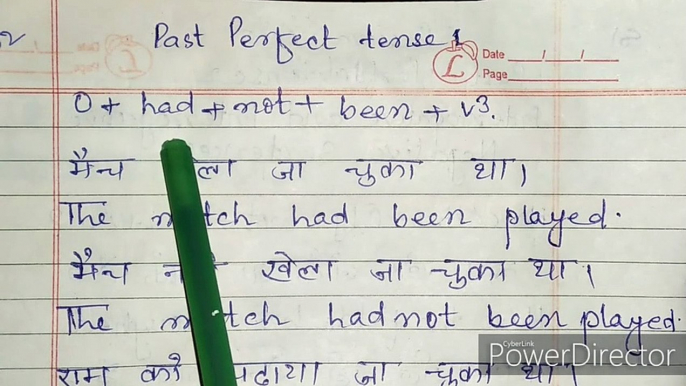 Past Perfect tense
Date / /
Page
O + had + not + been + v3.
मैच जा चुका था।
The had been played.
मैच खेला जा चुका था।
The had not been played.
राम को जा चुका था।
CyberLink
PowerDirector